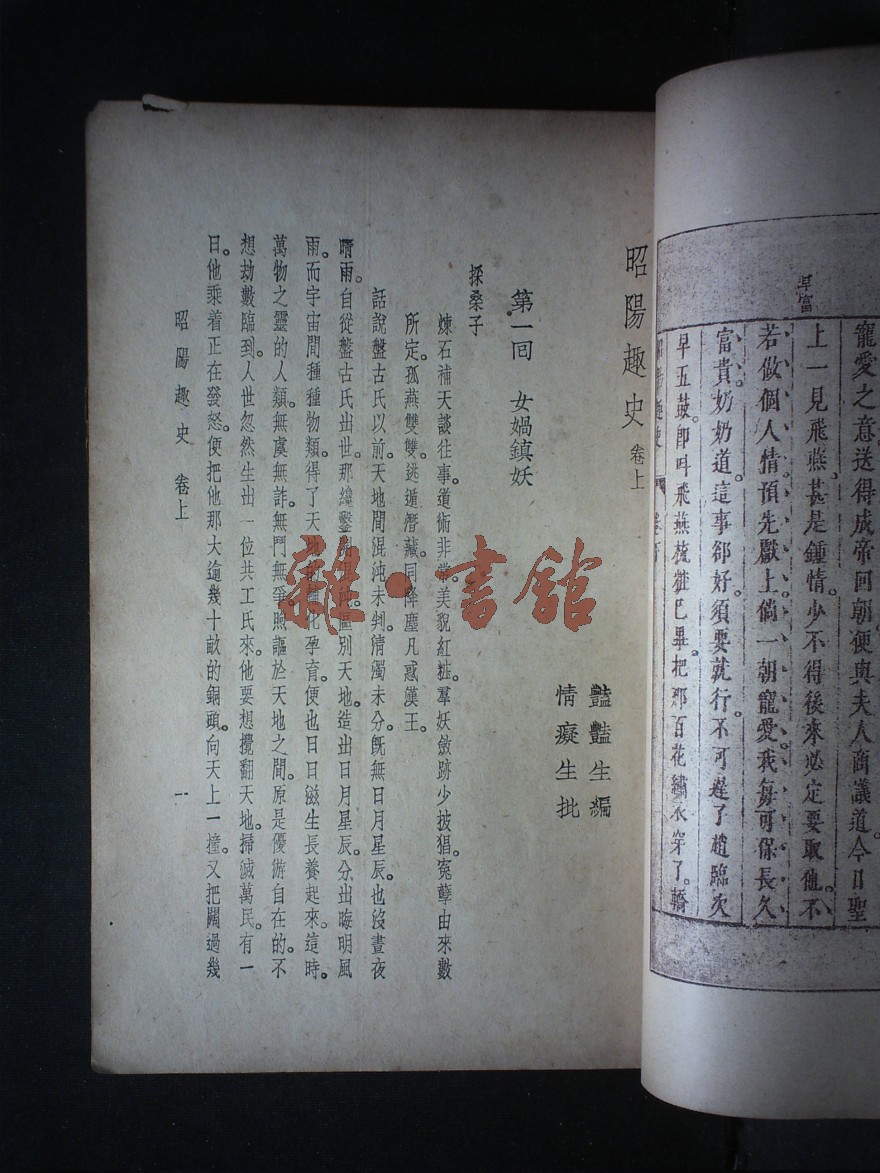 寵愛之意送得成帝回朝便與夫人商議道今日聖
上一見飛燕甚是鍾情少不得後來必定要取他不
早富
若做個人情預先獻上倘一朝寵愛我每可保長久
富貴奶奶道這事卻好須要就行不可遲了趙臨次
早五鼓即呌飛燕梳粧已畢把那百花繡衣穿了轎
昭陽趣史 卷上
豔豔生編
情癡生批
第一回 女媧鎮妖
採桑子
煉石補天談往事。道術非常。美貌紅粧。羣妖斂跡少披猖。寃孽由來數
所定。孤燕雙雙。逃遁潛藏。同降塵凡惑漢王。
話說盤古氏以前。天地間混沌未判。清濁未分。旣無日月星辰。也沒晝夜
晴雨。自從盤古氏出世。那纔鑿開混沌。區別天地。造出日月星辰。分出晦明風
雨。而宇宙間種種物類。得了天地的化孕育。便也日日滋生長養起來。這時。
萬物之靈的人類。無虞無詐。無鬥無爭。照謳於天地之間。原是優游自在的。不
想劫數臨到。人世忽然生出一位共工氏來。他要想攪翻天地。掃滅萬民。有一
日。他乘着正在發怒。便把他那大逾幾十畝的銅頭。向天上一撞。又把闊過幾
昭陽趣史 卷上 一
雜·書館